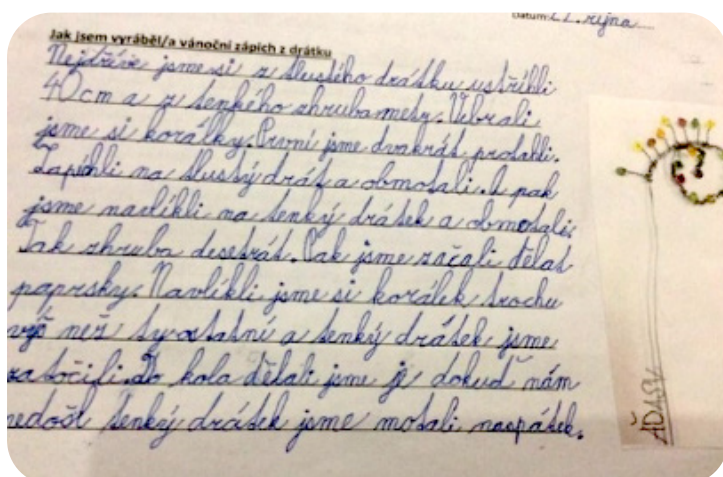 Datum: 21. října
Jak jsem vyráběl/a vánoční zápich z drátku
Nejdříve jsme si z tlustého drátku ustřihli
40cm a z tenkého zhruba metr. Vybrali
jsme si korálky. První jsme dvakrát protáhli.
Zapíchli na tlustý drát a obmotali. A pak
jsme navlíkli na tenký drátek a obmotali.
Tak zhruba desetrát. Pak jsme začali dělat
paprsky. Navlíkli jsme si korálek trochu
výš než ty ostatní a tenký drátek jsme
zatočili. Do kola dělali jsme je dokuď nám
nedošl tenký drátek jsme motali naspátek.